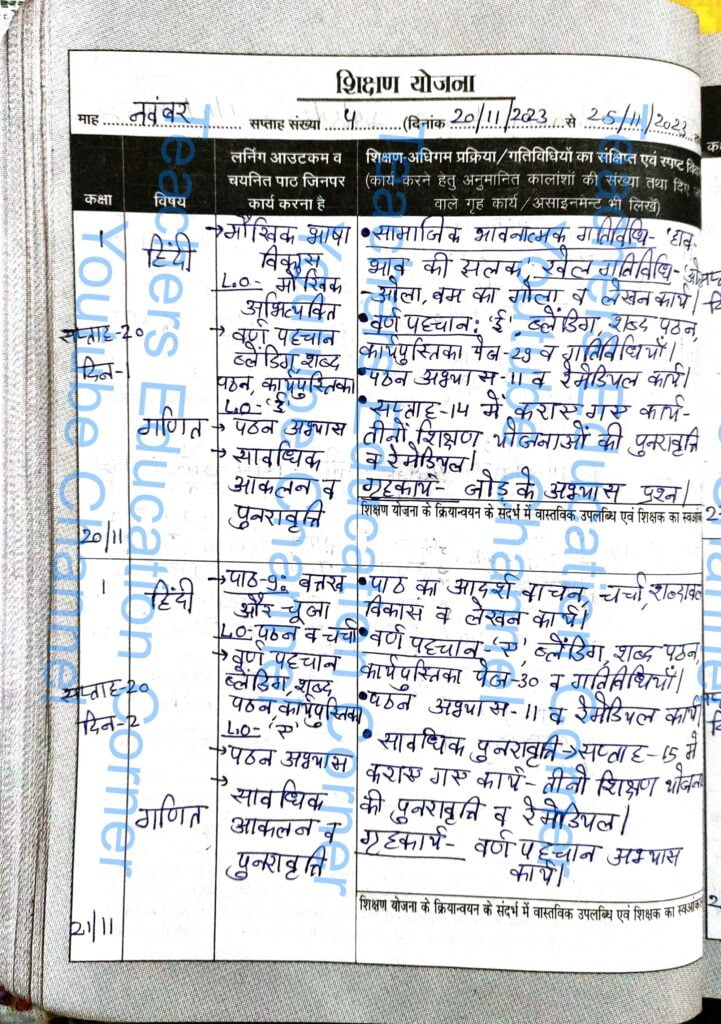 शिक्षण योजना
माह नवंबर सप्ताह संख्या 4 (दिनांक 20/11/2023 से 25/11/2023
कक्षा
विषय
लर्निंग आउटकम व
चयनित पाठ जिनपर
कार्य करना है
शिक्षण-अधिगम प्रक्रिया/गतिविधियों का संक्षिप्त एवं स्पष्ट
(कार्य करने हेतु अनुमानित कालांशों की संख्या तथा दिए
वाले गृह कार्य/असाइनमेन्ट भी लिखें)
1
सप्ताह-20
दिन-1
20/11
हिंदी
गणित
→मौखिक भाषा
विकास
L.O- मौखिक
अभिव्यक्ति
→ वर्ण पहचान
ब्लेंडिंग, शब्द
पठन, कार्यपुस्तिका
L.O- 'ई'
→ पठन अभ्यास
→ सावधिक
आकलन व
पुनरावृत्ति
•सामाजिक भावनात्मक गतिविधि- 'हाव-
भाव की झलक', खेल गतिविधि-
ओला, बम का गोला व लेखन कार्य।
•वर्ण पहचान: 'ई' ब्लेंडिंग, शब्द पठन,
कार्यपुस्तिका पेज-29 व गतिविधियाँ।
•पठन अभ्यास-11 व रेमेडियल कार्य।
•सप्ताह-14 में कराए गए कार्य-
तीनों शिक्षण योजनाओं की पुनरावृत्ति
व रेमेडियल।
गृहकार्य- जोड़ के अभ्यास प्रश्न।
शिक्षण योजना के क्रियान्वयन के संदर्भ में वास्तविक उपलब्धि एवं शिक्षक का
1
सप्ताह-20
दिन-2
21/11
हिंदी
गणित
→पाठ-9: बत्तख
और चूजा
L.O-पठन व चर्चा
→ वर्ण पहचान
ब्लेंडिंग, शब्द
पठन, कार्यपुस्तिका
L.O- 'ए'
→पठन अभ्यास
→ सावधिक
आकलन व
पुनरावृत्ति
•पाठ का आदर्श वाचन, चर्चा,
विकास व लेखन कार्य।
•वर्ण पहचान-'ए', ब्लेंडिंग, शब्द पठन,
कार्यपुस्तिका पेज-30 व गतिविधियाँ।
•पठन अभ्यास-11 व रेमेडियल कार्य।
• सावधिक पुनरावृत्ति→सप्ताह-15 में
कराए गए कार्य- तीनों शिक्षण
की पुनरावृत्ति व रेमेडियल।
गृहकार्य- वर्ण पहचान अभ्यास
कार्य।
शिक्षण योजना के क्रियान्वयन के संदर्भ में वास्तविक उपलब्धि एवं शिक्षक का
Teachers Education Corner
Youtube Channel
Teachers Education Corner
Youtube Channel
Teachers Education Corner
Youtube Channel